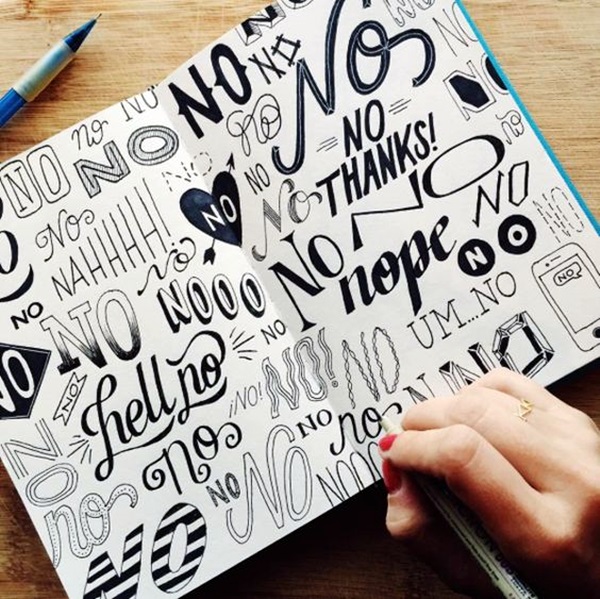 no
NO
NO
NO
No
NAHHHH!
NO
no
NO
NO
NOOO
NO
NO
hell no
No
NO
no
NO
NO
NO
NO
no
NO
NO
No
NO
THANKS!
NO
No
NO
NO
nope
NO
NO
no
NO
NO
UM...NO
NO
¡NO!
NO!
NO
NO
no
NO
NO
NO